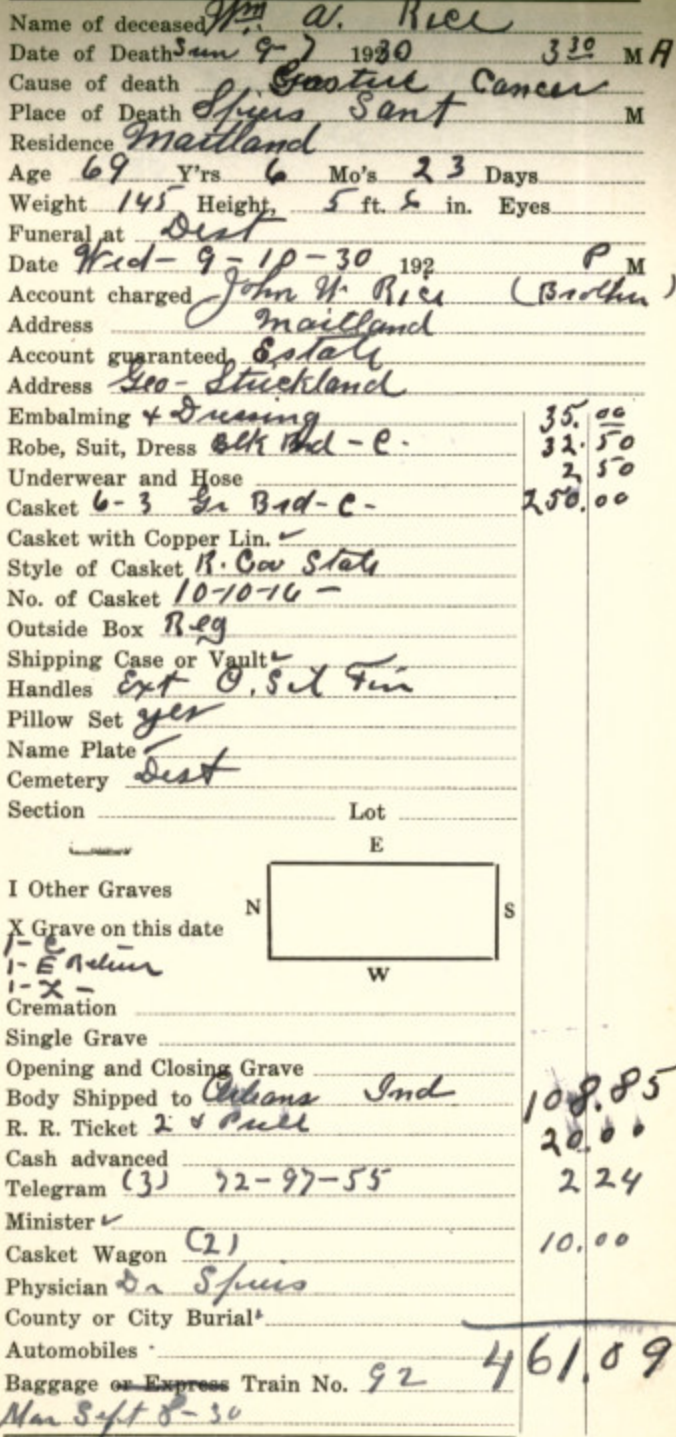 Name of deceased Wm. A. Rice
Date of Death Sun 9-7 1930 3 30 M A
Cause of death Gastric Cancer
Place of Death Spiers Sant M
Residence Maitland
Age 69 Y'rs 6 Mo's 23 Days
Weight 145 Height, 5 ft. 8 in. Eyes
Funeral at Dest
Date Wed-9-10-30 192 P M
Account charged John W. Rice (Brother)
Address Maitland
Account guaranteed Estate
Address Geo-Strickland
Embalming + Dressing 35.00
Robe, Suit, Dress Blk Brd-C- 32.50
Underwear and Hose 2 50
Casket 6-3 Gr Brd-C- 250.00
Casket with Copper Lin. ✓
Style of Casket R. Cor State
No. of Casket 10-10-16-
Outside Box Reg
Shipping Case or Vault ✓
Handles Ext O. Fin
Pillow Set yes
Name Plate ✓
Cemetery Dest
Section Lot
E
I Other Graves
N S
X Grave on this date
1-C
1-E Return
1-X-
W
Cremation
Single Grave
Opening and Closing Grave
Body Shipped to Orleans Ind 108.85
R. R. Ticket 2 & Pull 20.00
Cash advanced
Telegram (3) 72-97-55 2 24
Minister ✓
Casket Wagon (2) 10.00
Physician Dr Spiers
County or City Burial
Automobiles - 461.09
Baggage or Express Train No. 92
Mon Sept 8-30